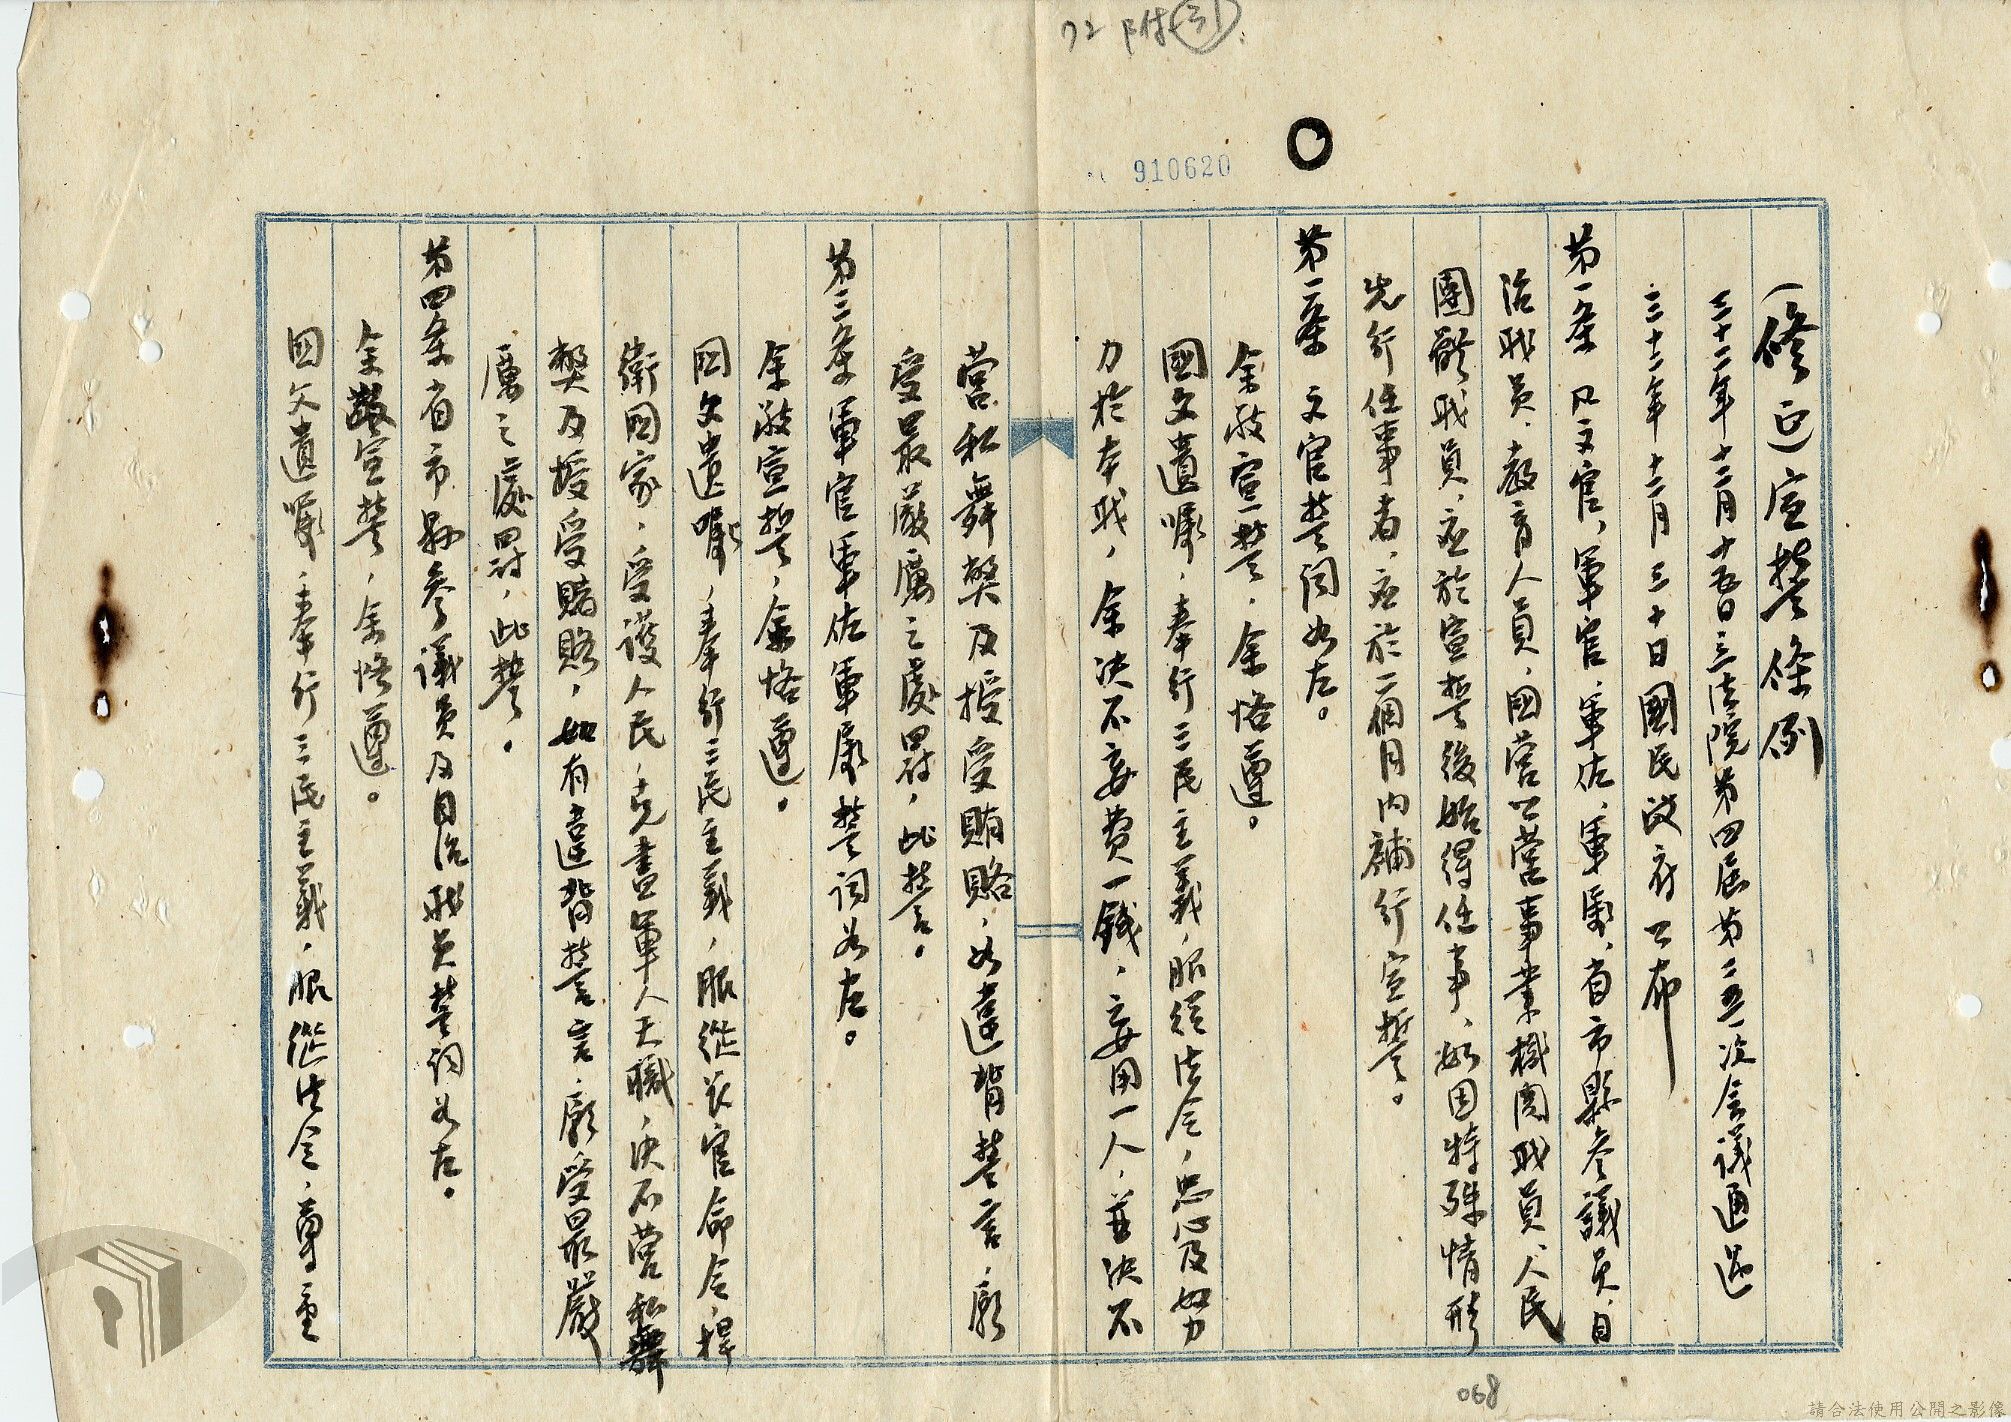 72附(31)
910620
修正宣誓條例
三十二年十二月十五日立法院第四屆第二五一次會議通過
三十二年十二月三十日國民政府公布
第一条 凡文官、軍官、軍佐、軍屬、省市縣參議員、自
治职員、教育人員、國营公營事業機関职員、人民
團體职員、应於宣誓後始得任事、如因特殊情形
先行任事者、应於二個月内補行宣誓。
第二条 文官誓词如左。
余敬宣誓，余恪遵。
國父遺囑，奉行三民主義，服從法令，忠心及努
力於本职，余决不妄費一錢，妄用一人，並决不
营私舞弊及授受賄賂，如違背誓言，願
受最嚴厲之處罸，此誓。
第三条 軍官軍佐軍屬誓词如左。
余敬宣誓，余恪遵。
国父遺囑，奉行三民主義，服從长官命令，捍
衛国家，爱護人民，克盡軍人天職，决不营私舞
弊及授受賄賂，如有違背誓言，願受最嚴
厲之處罸，此誓。
第四条 省市縣參議員及自治职員誓词如左。
余敬宣誓，余恪遵。
国父遺囑，奉行三民主義，服從法令，尊重
068
請合法使用公開之影像